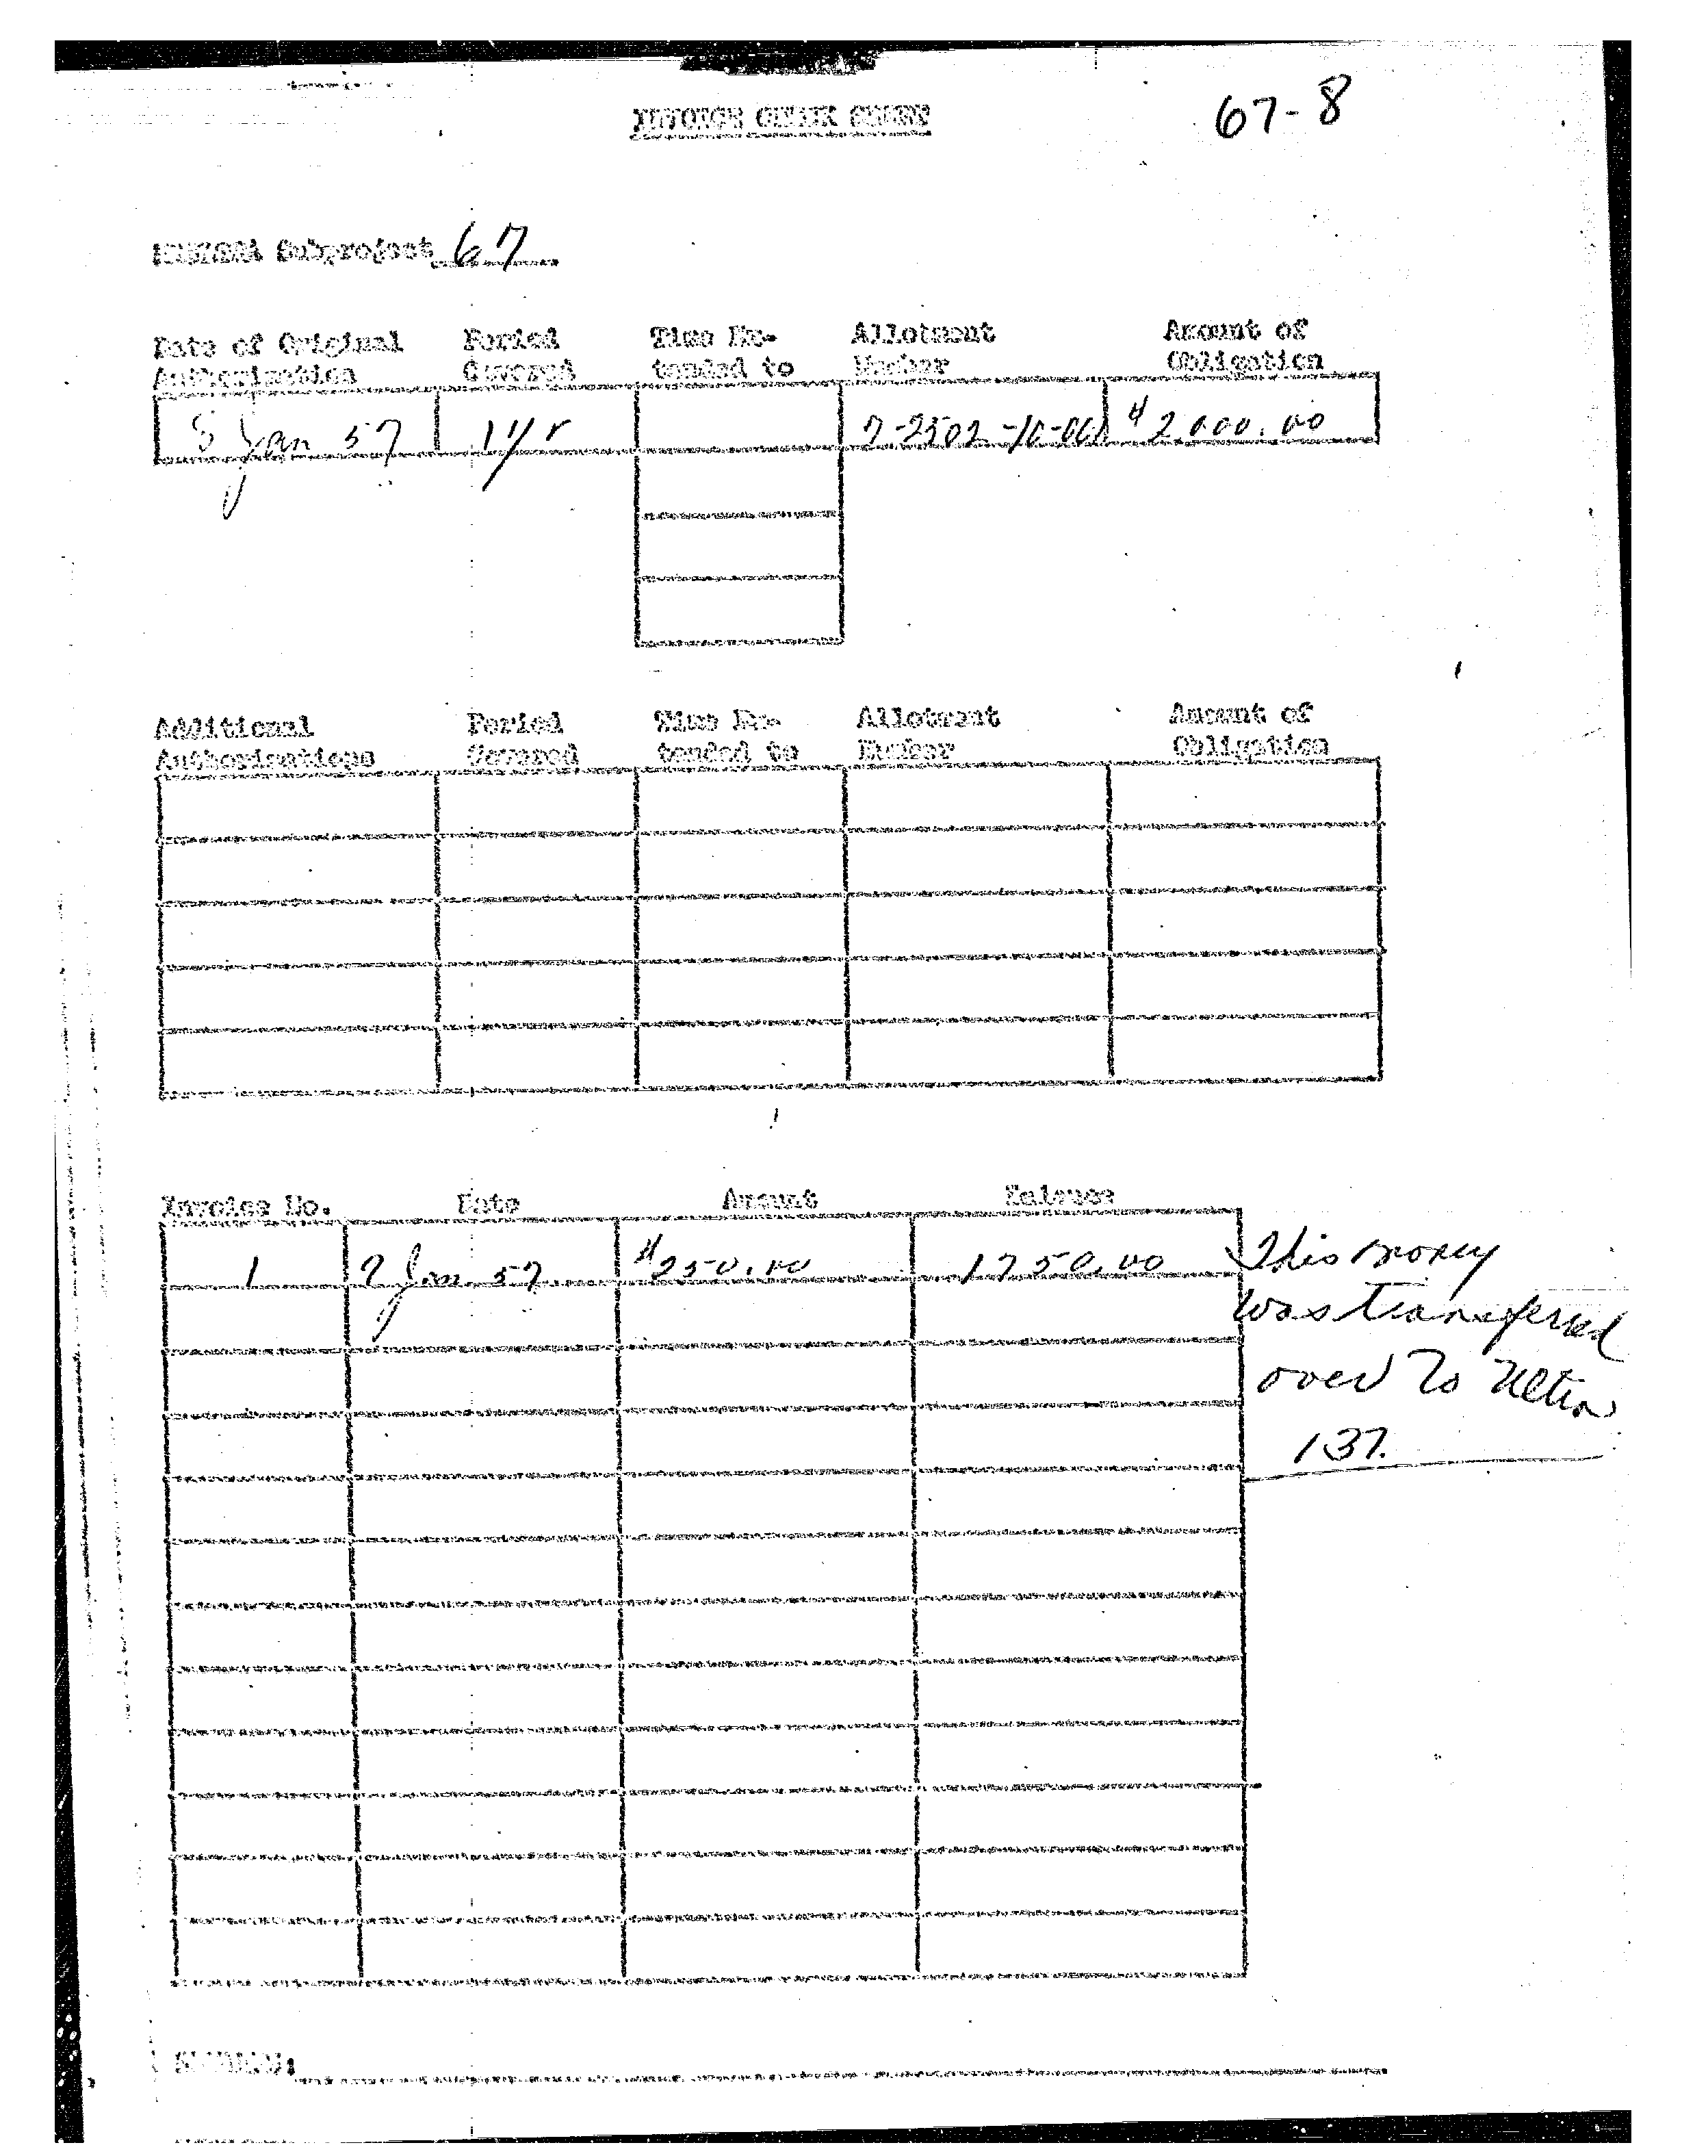 INVOICE CHECK SHEET
67-8
MKULTRA Subproject 67
Date of Original Period Time Ex- Allotment Amount of
Authorization Covered tended to Number Obligation
3 Jan 57 1 yr $2,000.00
Additional Period Time Ex- Allotment Amount of
Authorizations Covered tended to Number Obligation
Invoice No. Date Amount Balance
1 Jan 57 $250.00 1750.00
This money
was transferred
over to Ultra
137.